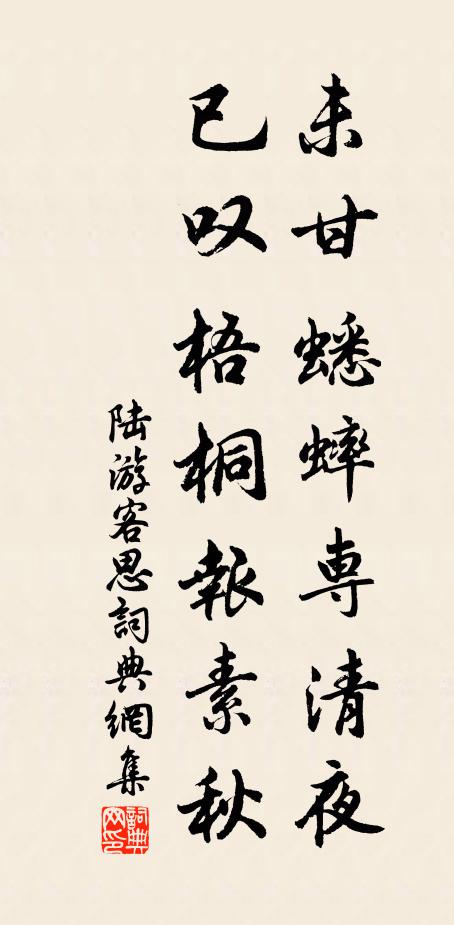 未甘蟋蟀専清夜
已叹梧桐報素秋
陆游客思詞典網集
詞典網印